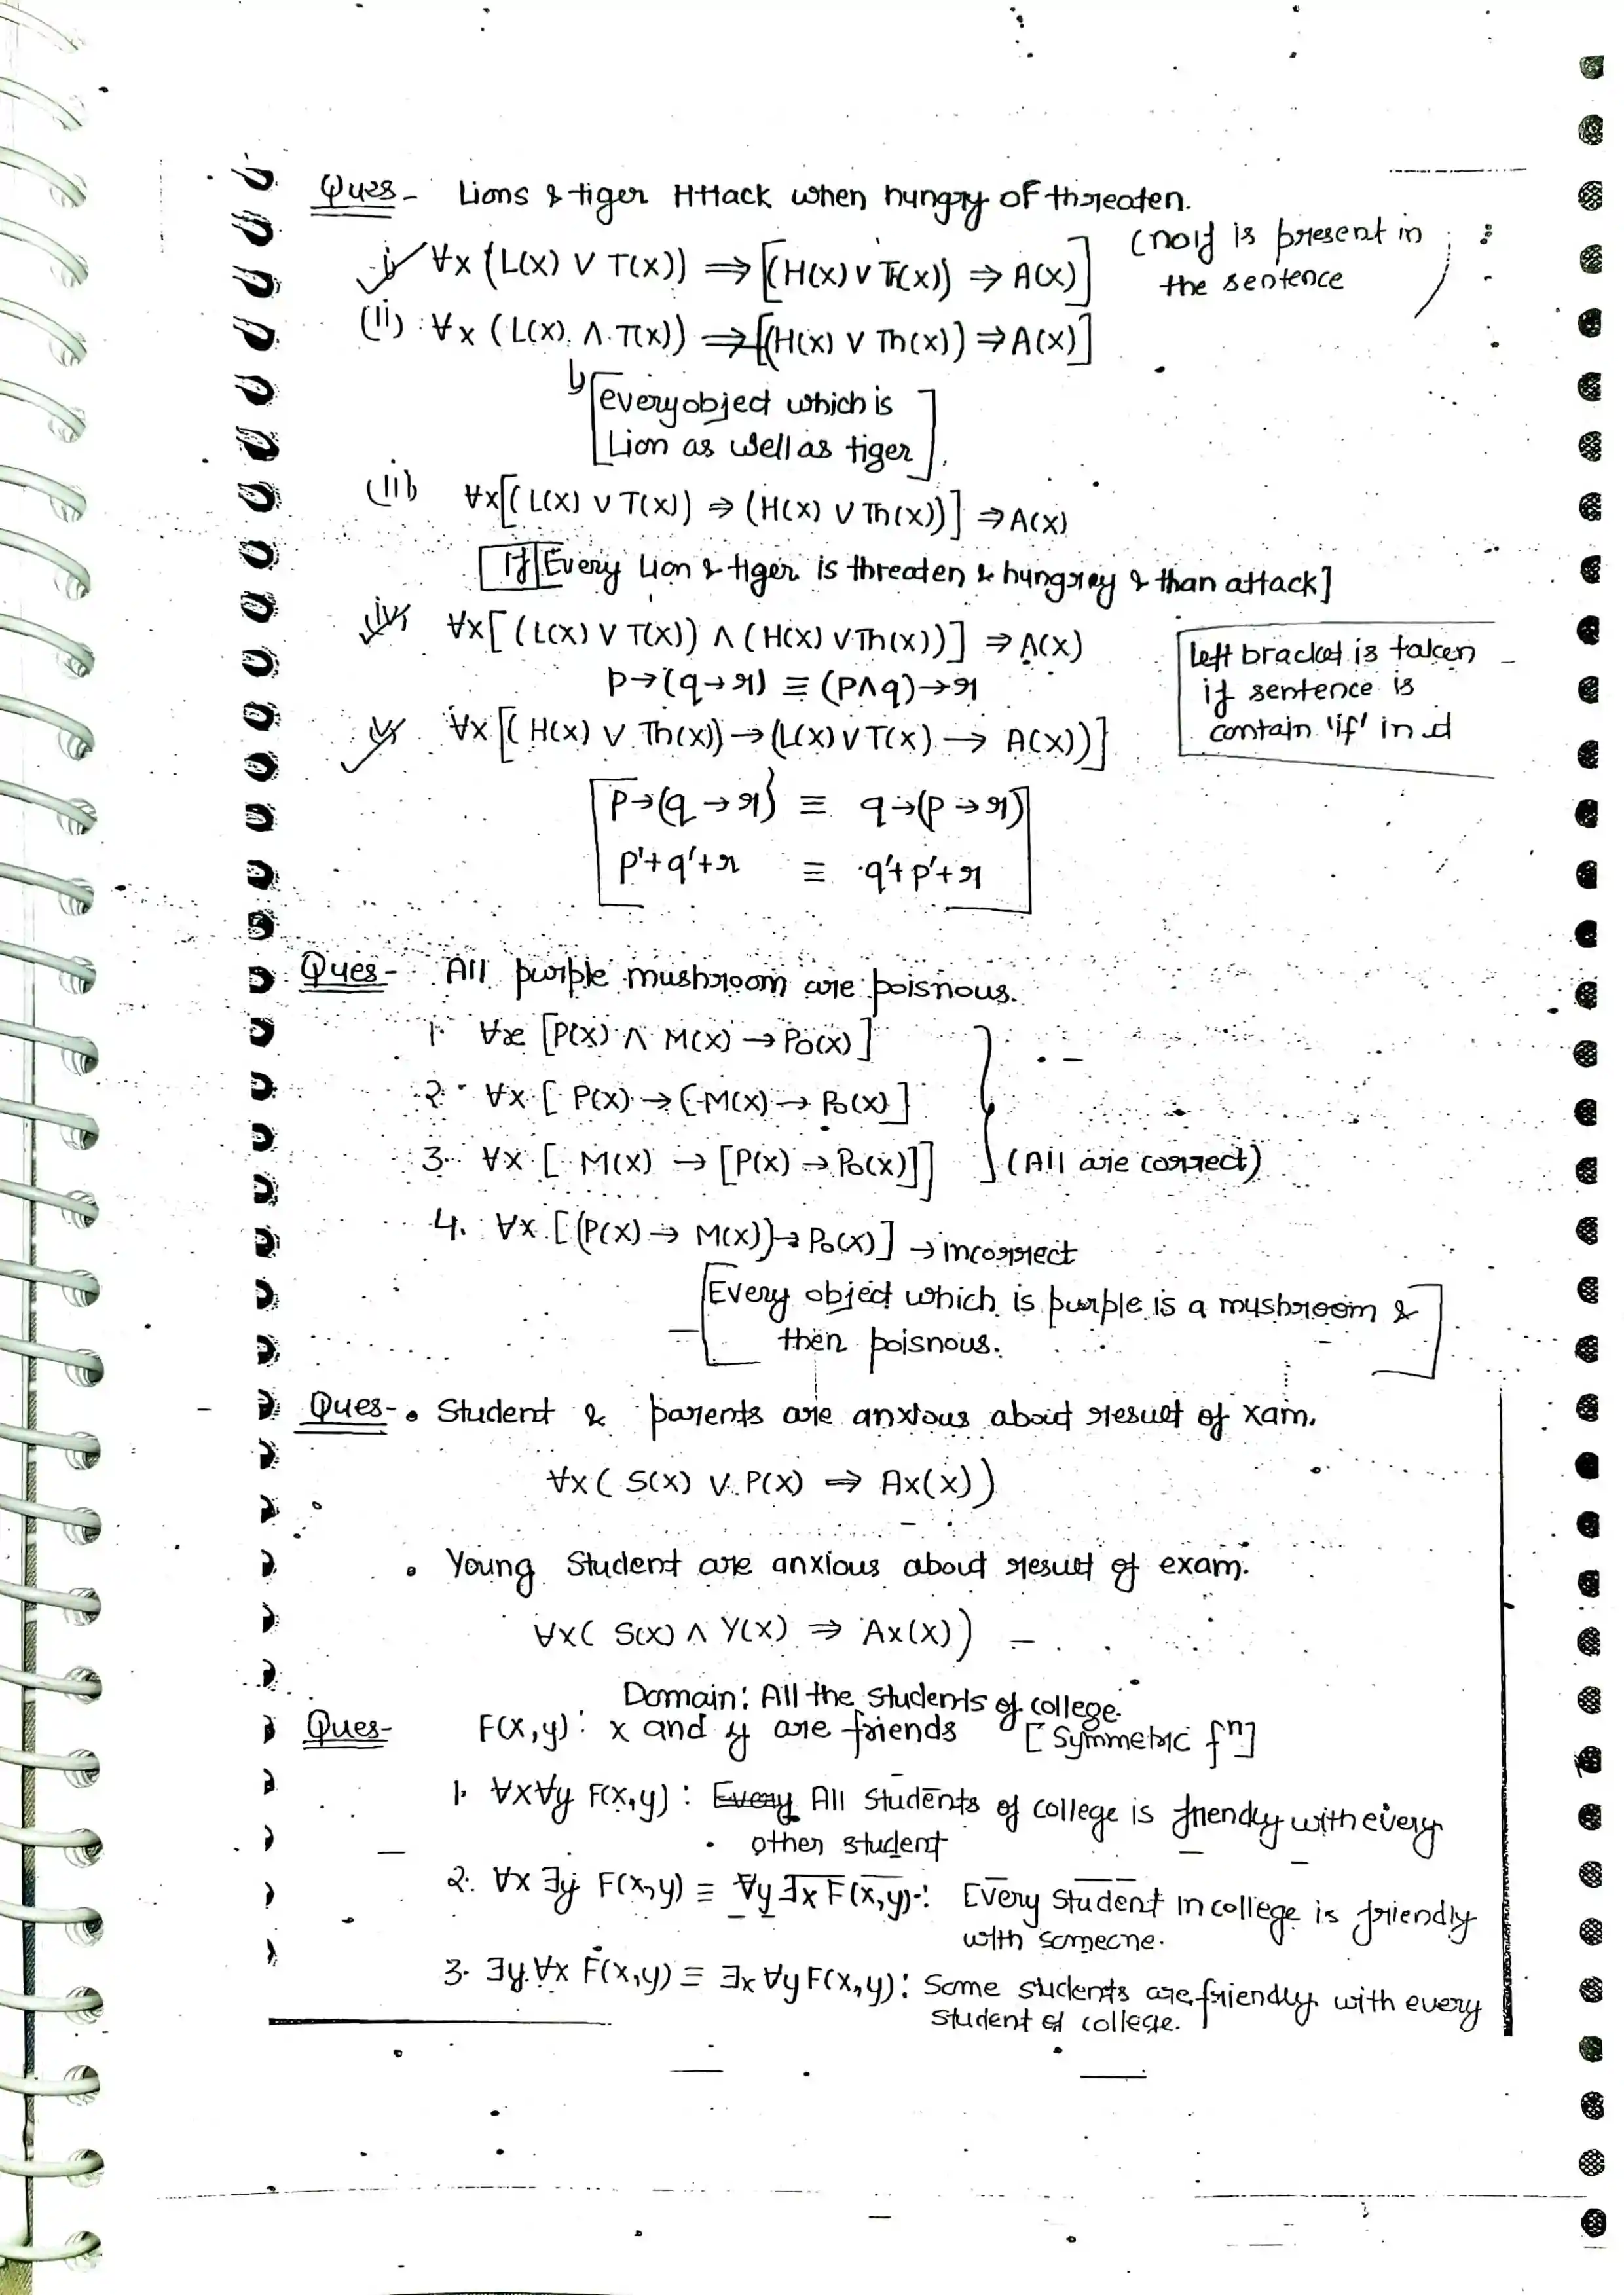 Ques- Lions & tiger Attack when hungry of threaten.
i) ∀x (L(x) ∨ T(x)) ⟹ [(H(x) ∨ Th(x)) ⇒ A(x)]
(no if is present in
the sentence )
(ii) : ∀x (L(x) ∧ T(x)) ⟹ [(H(x) ∨ Th(x)) ⇒ A(x)]
↳ [every object which is
Lion as well as tiger].
(iii) ∀x[(L(x) ∨ T(x)) ⇒ (H(x) ∨ Th(x))] ⇒ A(x)
[If Every Lion & tiger is threaten & hungrey & than attack]
iv) ∀x[(L(x) ∨ T(x)) ∧ (H(x) ∨ Th(x))] ⇒ A(x)
p→(q→r) ≡ (p∧q)→r
left bracket is taken
if sentence is
contain 'if' in it
v) ∀x [(H(x) ∨ Th(x)) → (L(x) ∨ T(x) → A(x))]
[p→(q→r) ≡ q→(p→r)
p'+q'+r ≡ q'+p'+r]
Ques- All purple mushroom are poisnous.
1. ∀x [P(x) ∧ M(x) → Po(x)]
2. ∀x [P(x) → (M(x) → Po(x)]
3. ∀x [M(x) → [P(x) → Po(x)]] } (All are correct)
4. ∀x [(P(x) → M(x)) → Po(x)] → incorrect
[Every object which is purple is a mushroom &
then poisnous.]
Ques- • Student & parents are anxious about result of xam.
∀x (S(x) ∨ P(x) ⟹ Ax(x))
• Young Student are anxious about result of exam.
∀x( S(x) ∧ Y(x) ⇒ Ax(x))
Domain: All the students of college.
Ques- F(x,y): x and y are friends [Symmetric fⁿ]
1. ∀x∀y F(x,y) : Every All Students of college is friendly with every
other student
2. ∀x ∃y F(x,y) ≡ ∀y ∃x F(x,y): Every student in college is friendly
with someone.
3. ∃y ∀x F(x,y) ≡ ∃x ∀y F(x,y): Some students are friendly with every
student of college.